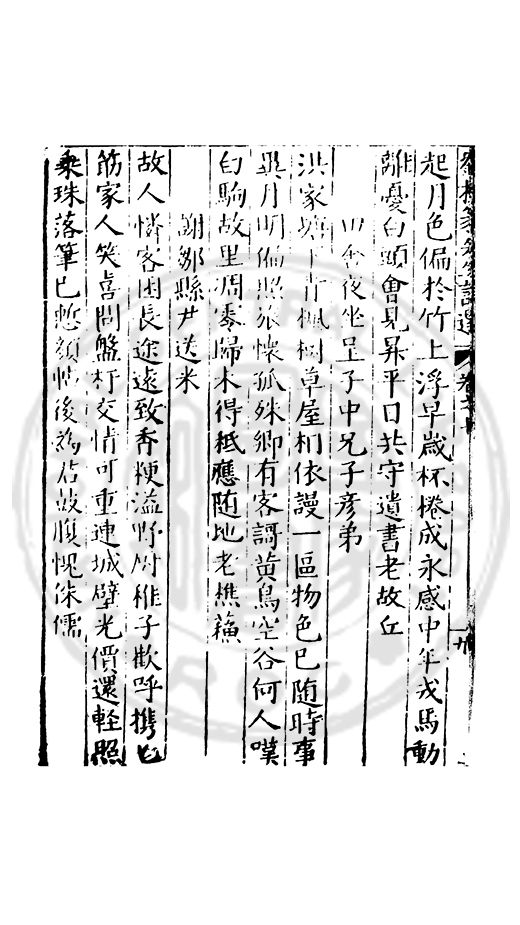 起月色偏於竹上浮早歲杯棬成永感中年戎馬動
離憂白頭會見昇平日共守遺書老故丘
田舍夜坐呈子中兄子彦弟
洪家塘下青楓樹草屋相依謾一區物色已隨時事
異月明偏照旅懷孤殊鄉有客謌黄鳥空谷何人嘆
白駒故里凋零歸未得祗應随地老樵蘓
謝鄒縣尹送米
故人憐客困長途遠致香粳溢野附稚子歡呼携匕
筯家人笑喜問盤杅交情可重連城壁光價還輕照
乗珠落筆已慙顔帖後為君鼓腹愧侏儒